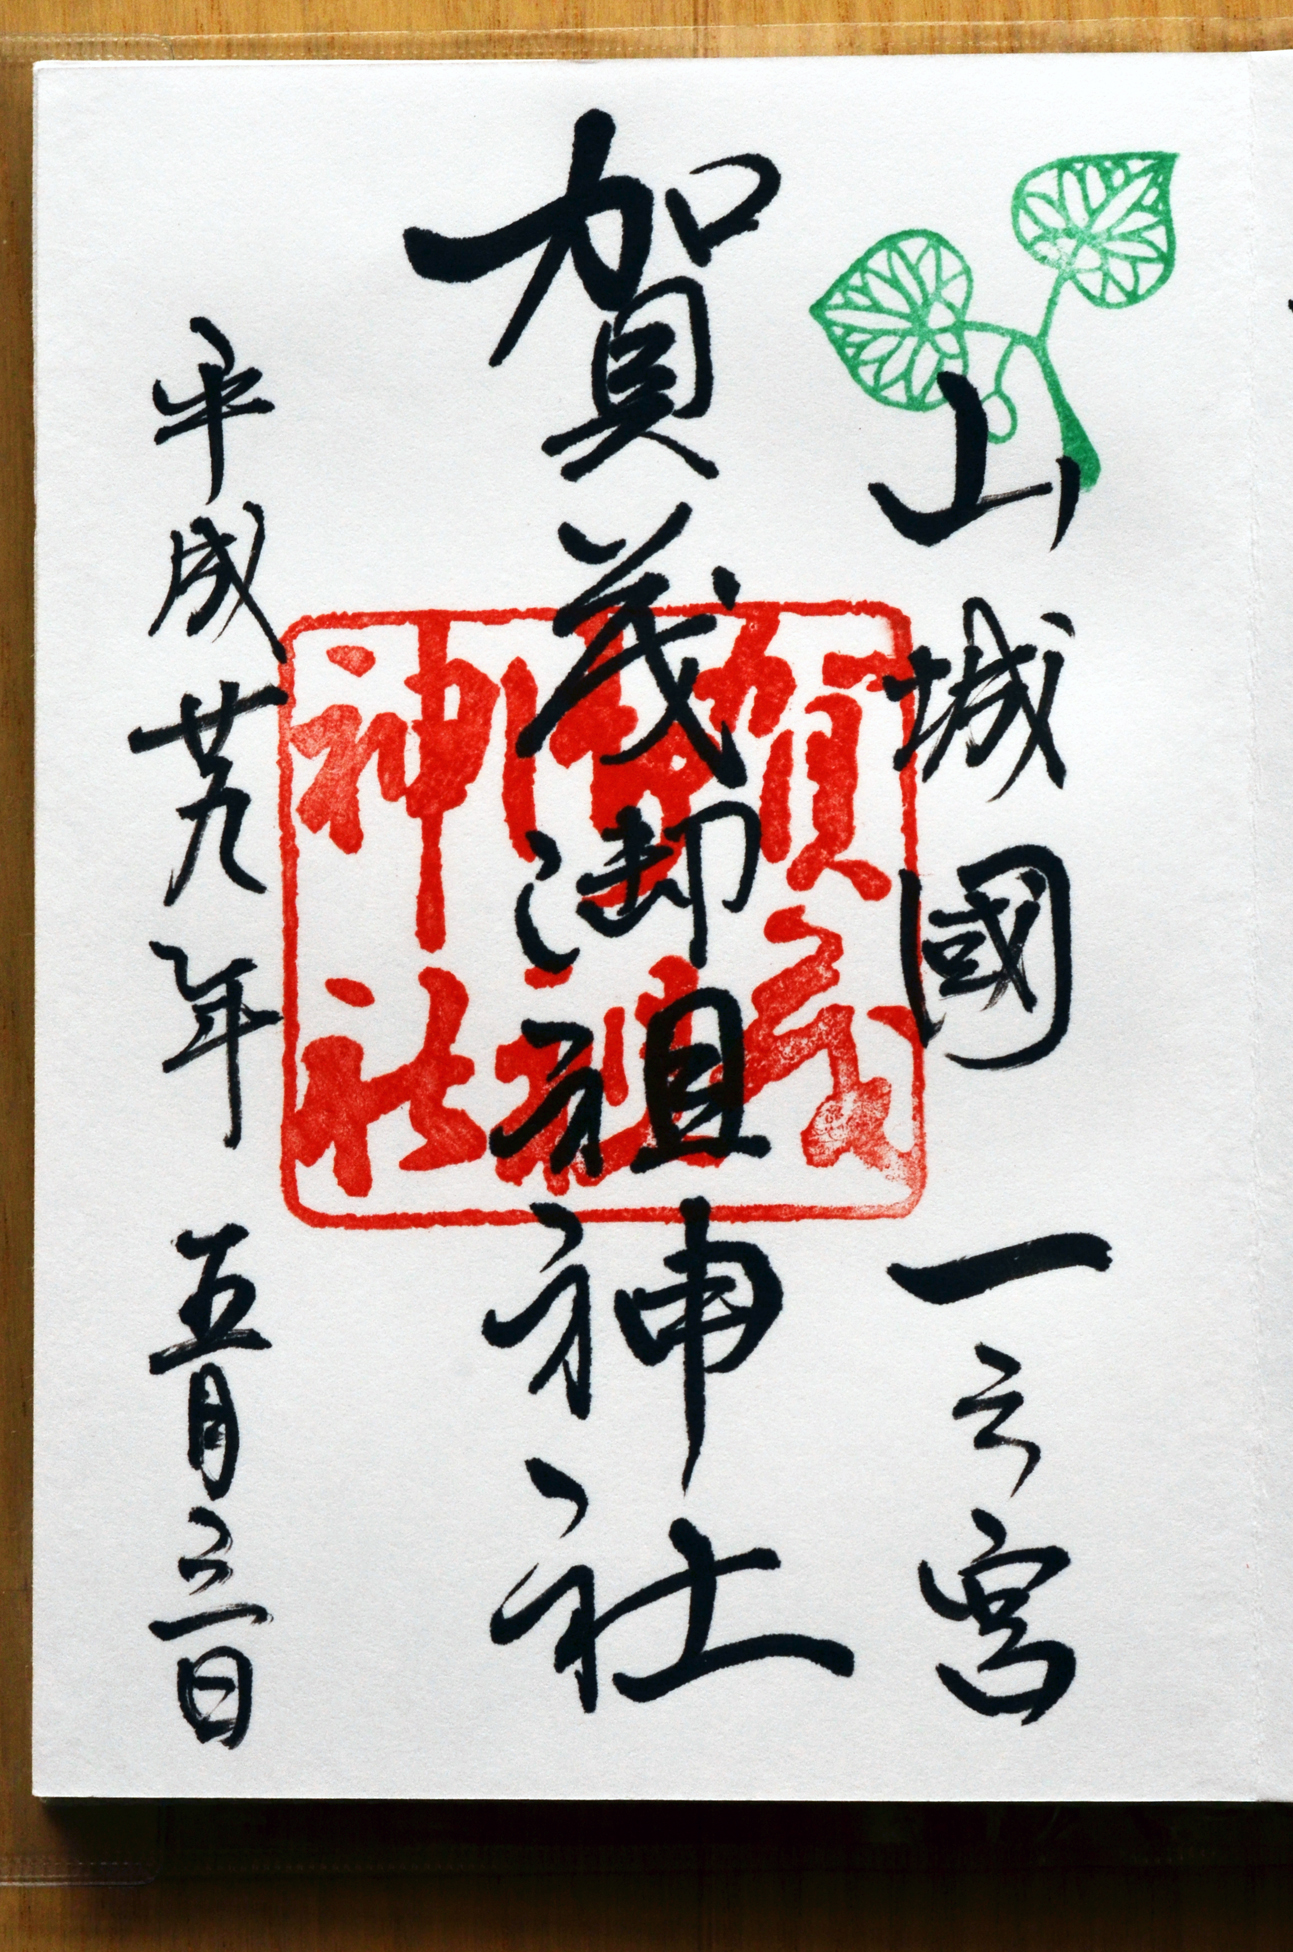 山城國一之宮
賀茂御祖神社
賀茂
御祖
神社
平成廿九年五月三日